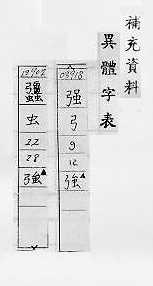 補充資料
異體字表
强
弓
9
12
強▲
虫
22
28
強▲